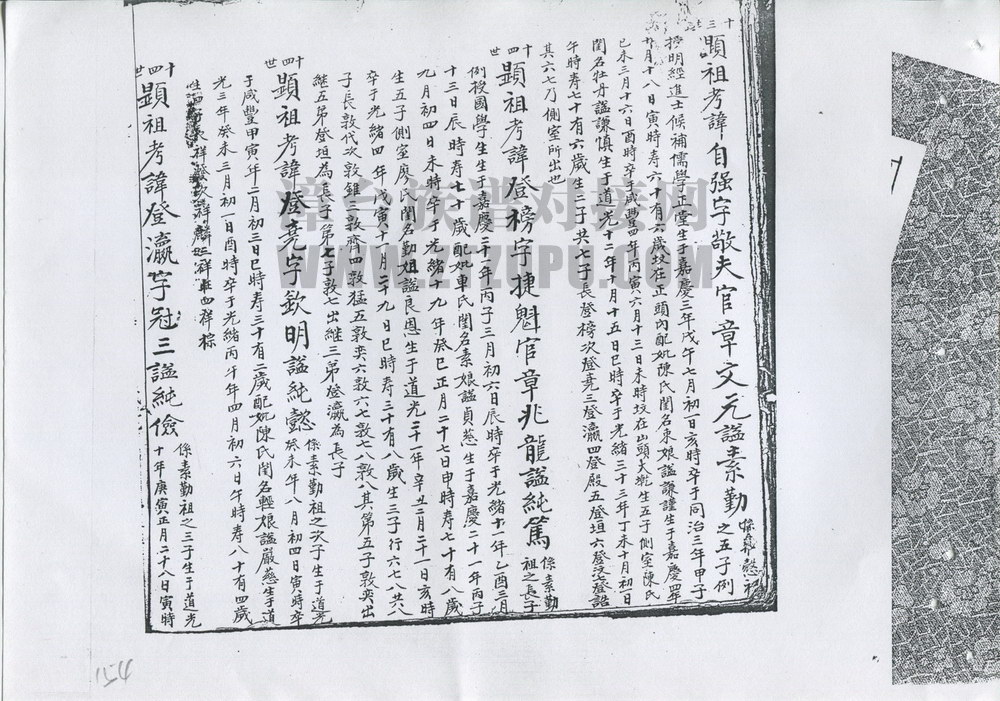 十三世
顕祖考諱自强字敬夫官章文元謚素勤之五子例
授明經進士候補儒學正堂生于嘉慶三年戊午七月初一日亥時卒于同治三年甲子
月十八日寅時寿六十有六歲坟在正頭內配妣陳氏閨名東娘謚謙謹生于嘉慶四年
已未三月十六日酉時卒咸豐四年丙寅六月十三日未時坟在山頭大生五子側室陳氏
閨名牡丹謚謙慎生于道光十二年十月十五日巳時卒于光緒三十三年丁未十月初一日
午時寿七十有六歲生二子共七子長登榜次登堯三登瀛四登殿五登垣六登七登諧
其六七乃側室所出也
十四世
顕祖考諱登榜字捷魁官章兆龍謚純篤係素勤祖之長子
例授國學生生于嘉慶二十一年丙子三月初六日辰時卒于光緒十一年乙酉三月
十三日辰時寿七十歲配妣車氏閨名素娘謚貞慈生于嘉慶二十一年丙子
九月初四日未時卒于光緒十九年癸巳正月二十七日申時寿七十有八歲
生五子側室廖氏閨名勤姐謚良恩生于道光二十一年辛丑二月二十一日亥時
卒于光緒四年戊寅十一月二十九日巳時寿三十有八歲生三子行六七八共八
子長敦代次敦錐三敦齊四敦猛五敦奕六敦七敦八敦其第五子敦奕出
継五弟登垣為長子第七子敦七出継三弟登瀛為長子
十四世
顕祖考諱登堯字欽明謚純懿係素勤祖之次子生于道光
癸未年八月初四日寅時卒
于咸豐甲寅年二月初三日巳時寿三十有二歲配妣陳氏閨名輕娘謚嚴慈生于道
光三年癸未三月初一日酉時卒于光緒丙午年四月初六日午時寿八十有四歲
生四子長祥發次祥麟三祥四祥棕
十四世
顕祖考諱登瀛字冠三謚純儉係素勤祖之三子生于道光
十年庚寅正月二十八日寅時
漳台族谱对接网
WWW.ZZZPU.COM
154